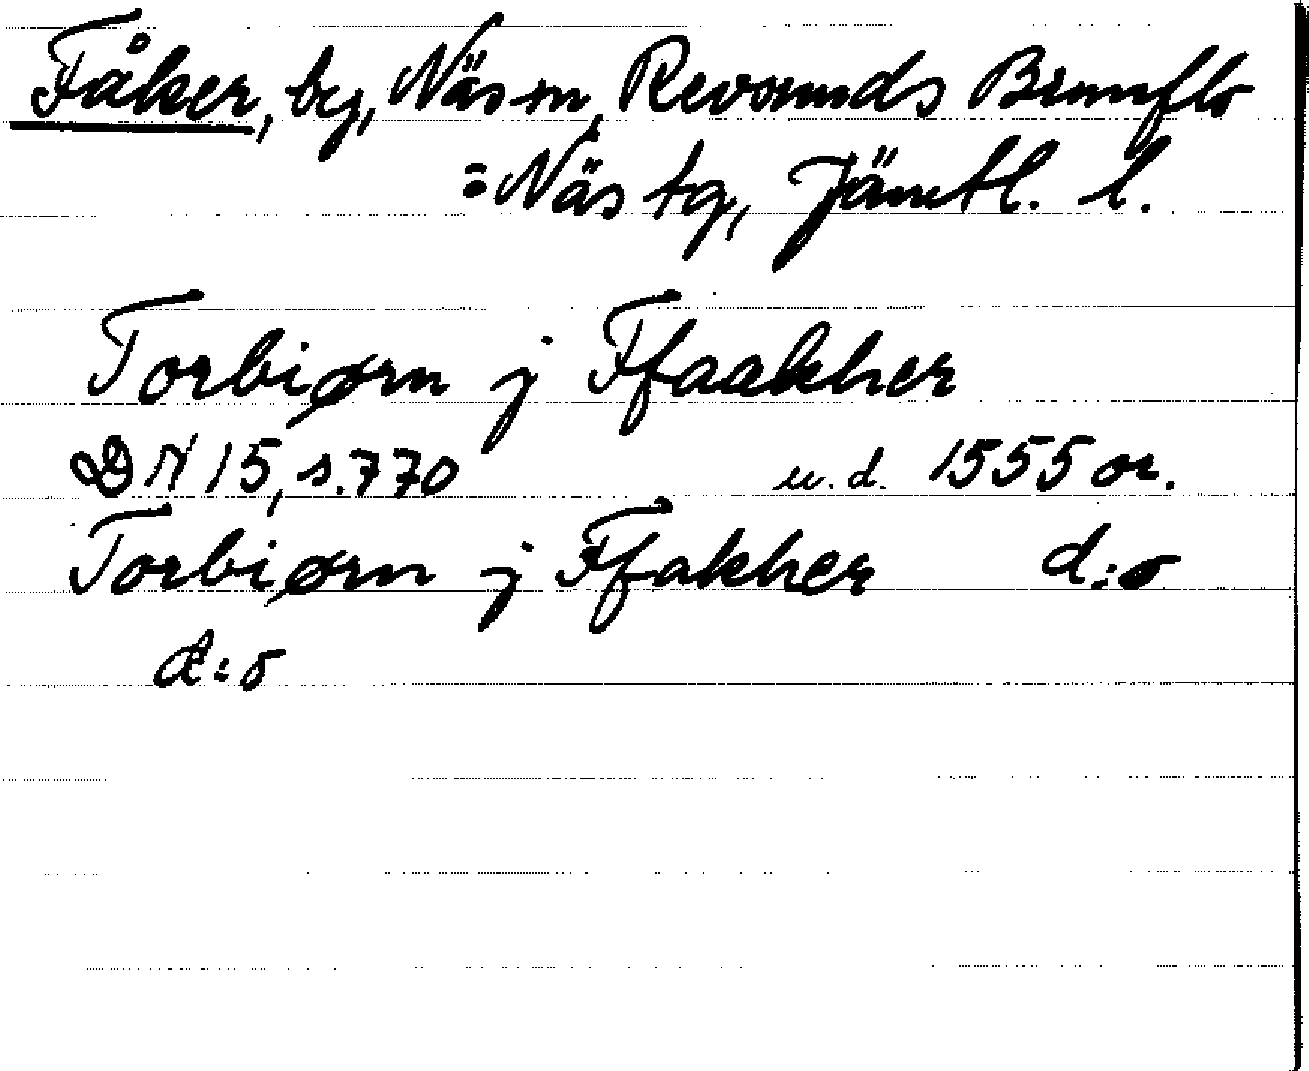 Fåker, by, Näs sn, Revsunds Brunflo
=Näs tg, Jämtl. l.
Torbiørn j Ffaakher
DN 15, s.770 u.d. 1555 or.
Torbiørn j Ffakher d:o
d:o